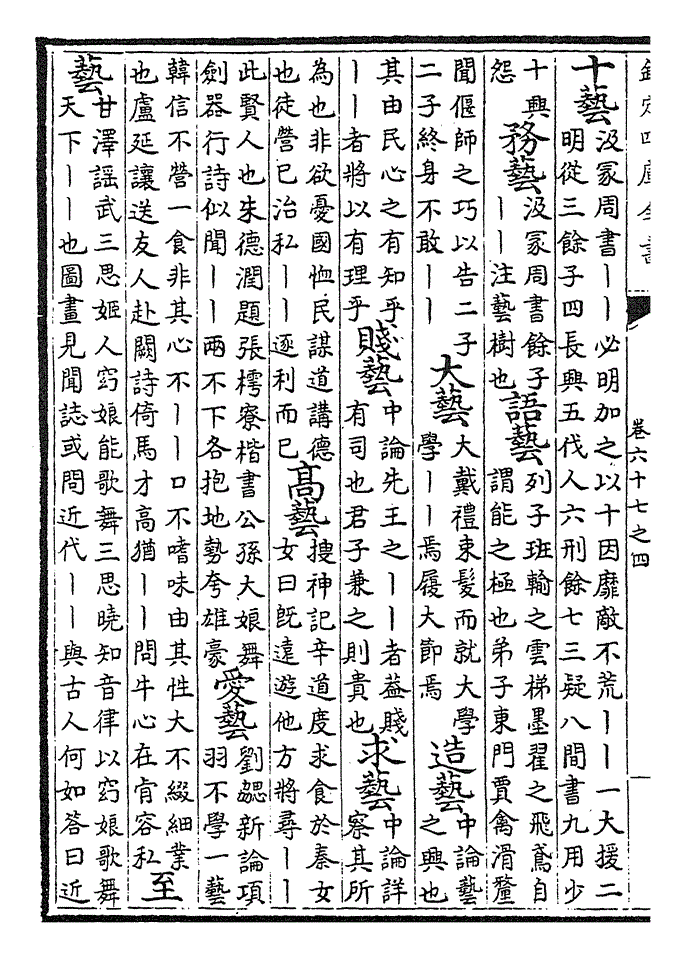 欽定四庫全書
卷六十七之四
一
十藝
汲冢周書丨丨必明加之以十因靡敵不荒丨丨一大援二
明從三餘子四長興五伐人六刑餘七三疑八間書九用少
十興
怨
務藝
汲冢周書餘子
丨丨注藝樹也
語藝
列子班輸之雲梯墨翟之飛鳶自
謂能之極也弟子東門賈禽滑釐
聞偃師之巧以告二子
二子終身不敢丨丨
大藝
大戴禮束髮而就大學
學丨丨焉履大節焉
造藝
中論藝
之興也
其由民心之有知乎
丨丨者將以有理乎
賤藝
中論先王之丨丨者葢賤
有司也君子兼之則貴也
求藝
中論詳
察其所
為也非欲憂國恤民謀道講德
也徒營已治私丨丨逐利而已
高藝
搜神記辛道度求食於秦女
女曰既遠遊他方將尋丨丨
此賢人也朱德潤題張樗寮楷書公孫大娘舞
劍器行詩似聞丨丨兩不下各抱地勢夸雄豪
愛藝
劉勰新論項
羽不學一藝
韓信不營一食非其心不丨丨口不嗜味由其性大不綴細業
也盧延讓送友人赴闕詩倚馬才高猶丨丨問牛心在肯容私
至
藝
甘澤謡武三思姬人窈娘能歌舞三思曉知音律以窈娘歌舞
天下丨丨也圖畫見聞誌或問近代丨丨與古人何如答曰近